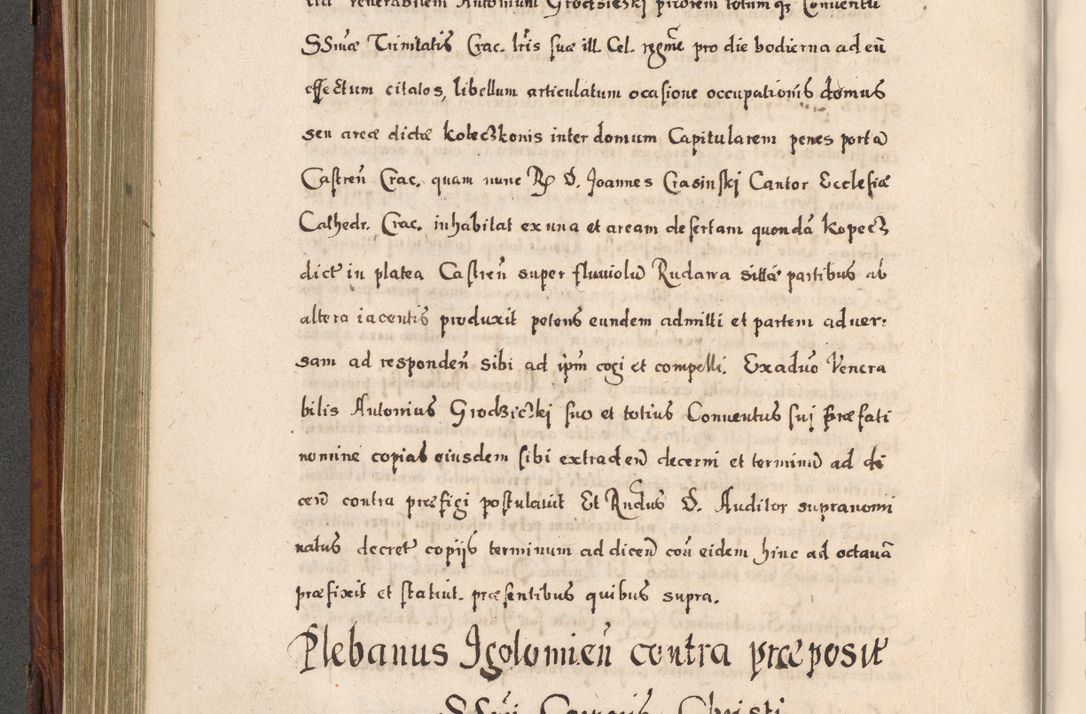 tra Venerabilem Antonium Grodzieski priorem totumq3 Conventū
SSmæ Trinitatis Crac. lr̃is suæ ill. Cel. rg̃me pro die hodierna ad eū
effectum citatos, libellum articulatum ocasione occupationis domus
seu areæ dictæ koteczkonis inter domum Capitularem penes portā
Castreñ Crac. quam nunc R. D. Joannes Crasinskj Cantor Ecclesiæ
Cathedr. Crac. inhabitat ex una et aream desertam quondā kopecz
dict̃ in platea Castreñ super fluuiolū Rudawa sittã partibus ab
altera iacentis produxit petens eundem admitti et partem aduer:
sam ad respondeñ sibi ad ip̃m cogi et compelli. Exaduõ Venera
bilis Antonius Grodzickj suo et totius Conuentus suj præfati
nomine copias eiusdem sibi extradeñ decerni et terminũ ad di
ceñ contra præfigi postulauit Et Rñdus D. Auditor supranomi
natus decret̃ copijs terminum ad diceñ coñ eidem hinc ad octauã
præfixit et statuit. præsentibus quibus supra.
Plebanus Igolomieñ contra præposit̃
SSmi Corporis Christi